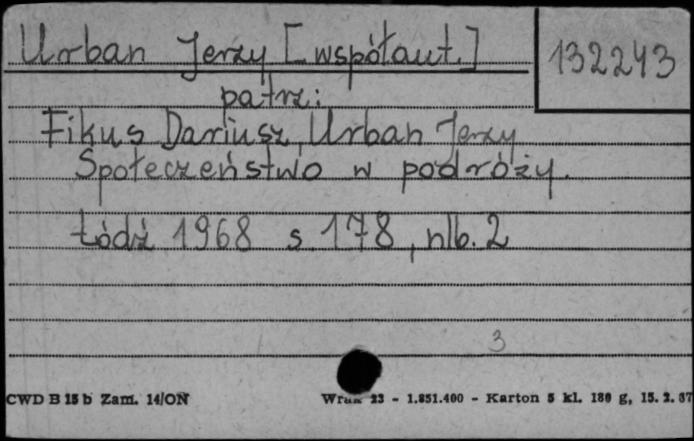 Urban Jerzy [współaut.]
132243
patrz:
Fikus Dariusz, Urban Jerzy
Społeczeństwo w podróży.
Łódź 1968 s. 178, nlb. 2
3
CWD B 15 b Zam. 14/ON
23 - 1.851.400 - Karton 5 kl. 180 g, 15. 2. 67